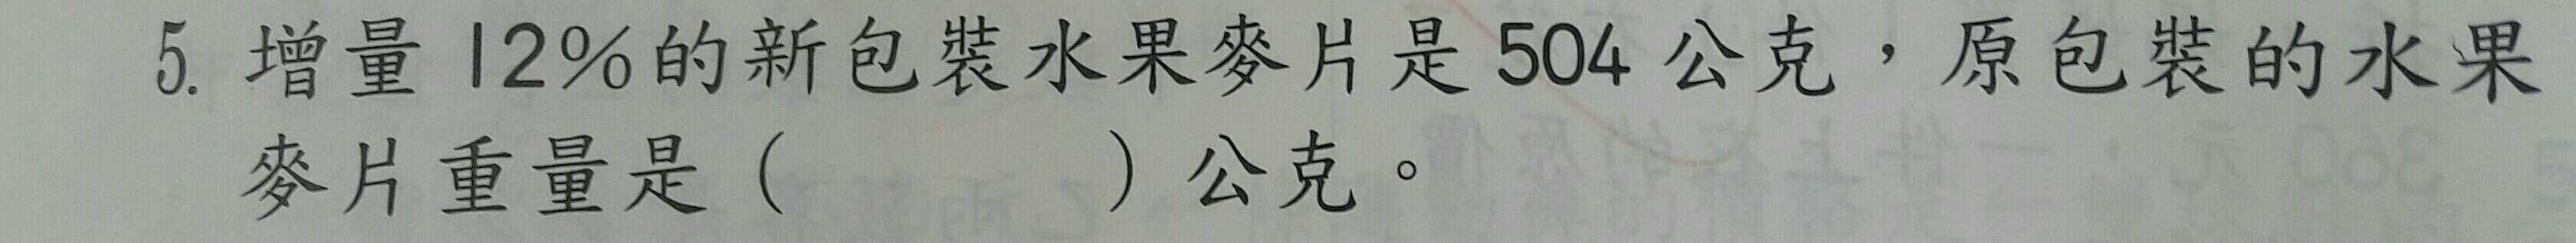 5. 增量 12%的新包裝水果麥片是 504 公克，原包裝的水果
麥片重量是（　　　）公克。